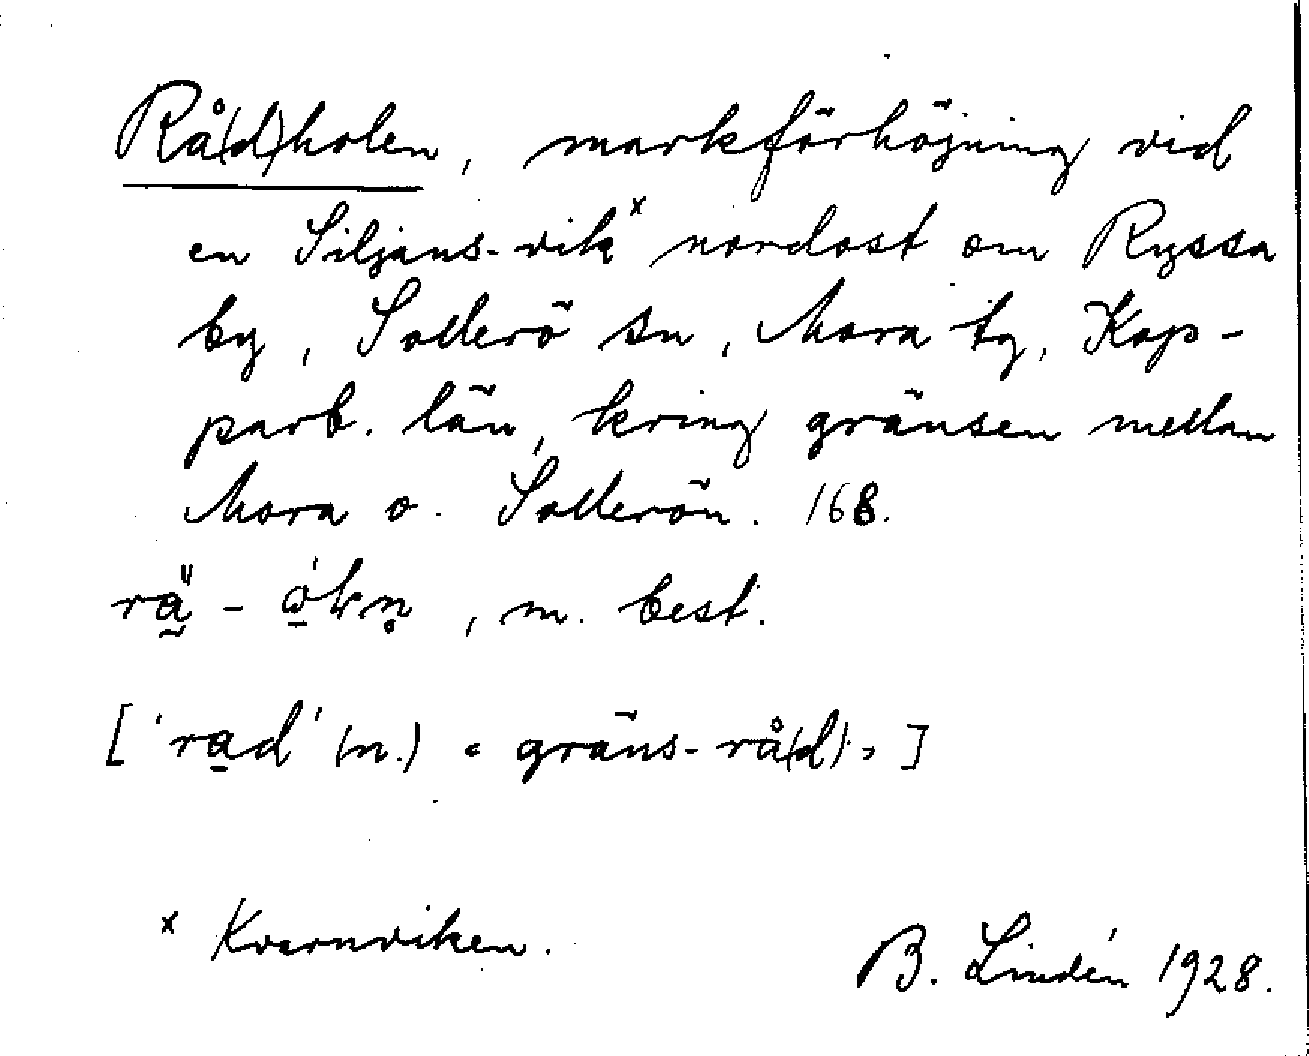 Rå(d)holen, markförhöjning vid
en Siljans-vik x nordost om Ryssa
by, Sollerö sn, Mora tg, Kop-
parb. län, kring gränsen mellan
Mora o. Sollerön. 168.
, m. best.
['rad' (n.) « gräns-rå(d) »]
x Kvarnviken.
B. Lindén 1928.